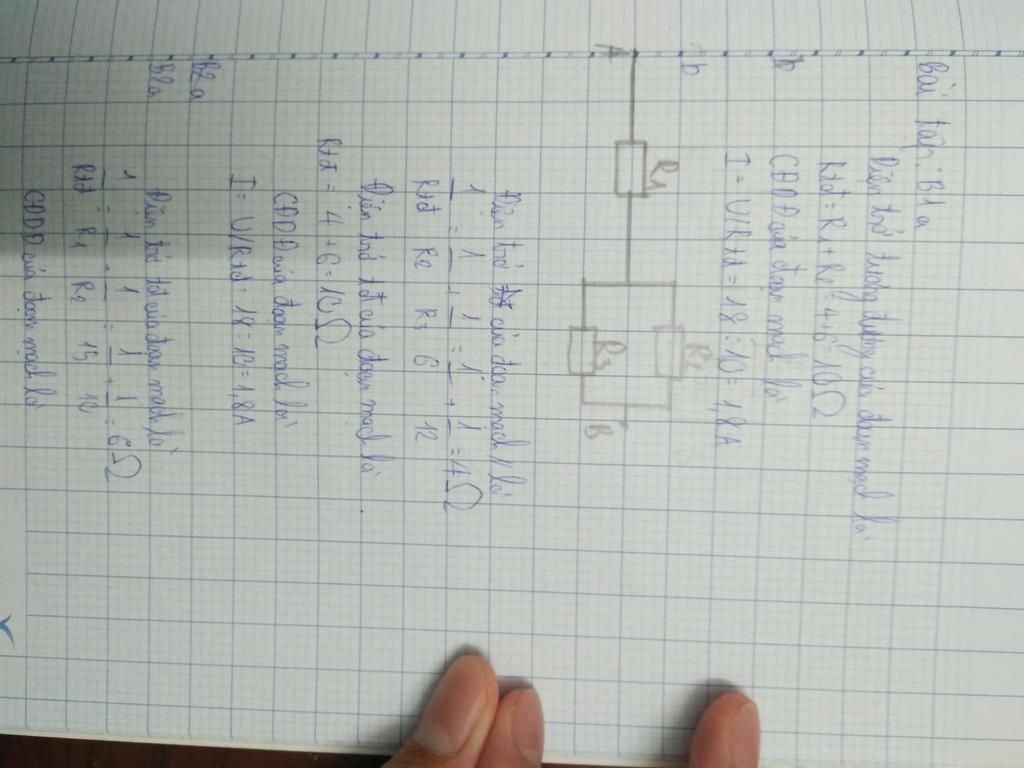 Bài tập: B1a
Điện trở tương đương của đoạn mạch là
Rtđ = R1 + R2 = 4+6 = 10Ω
b CĐDĐ của đoạn mạch là
I = U/Rtđ = 18 : 10 = 1,8A
b
A R1 R2 R3 B
Điện trở tđ của đoạn mạch // là
1/Rtđ = 1/R2 + 1/R3 = 1/6 + 1/12 = 4Ω
Điện trở tđ của đoạn mạch là
Rtđ = 4 + 6 = 10Ω
CĐDĐ của đoạn mạch là
I = U/Rtđ = 18 : 10 = 1,8A
B2a
B2a Điện trở tđ của đoạn mạch là
1/Rtđ = 1/R1 + 1/R2 = 1/15 + 1/10 = 6Ω
CĐDĐ của đoạn mạch là